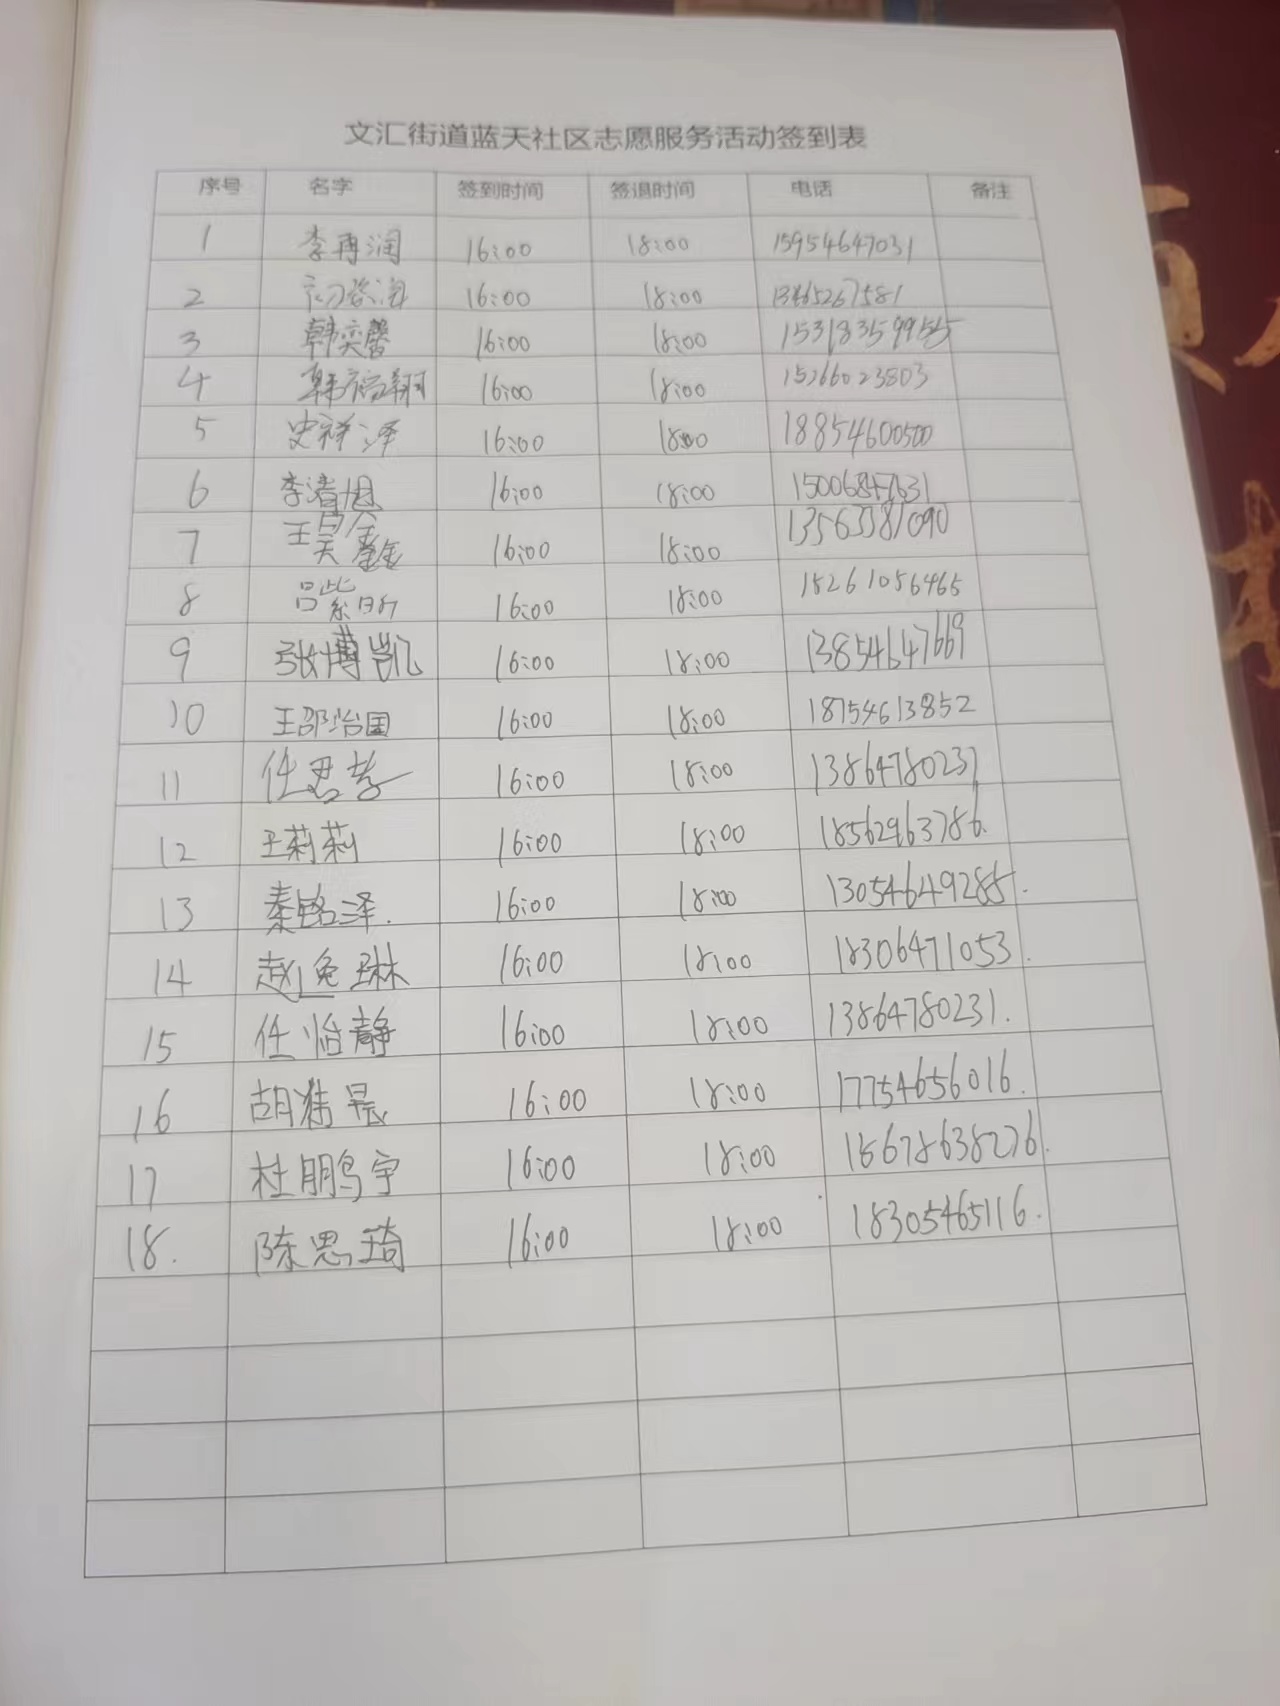 文汇街道蓝天社区志愿服务活动签到表
序号 名字 签到时间 签退时间 电话 备注
1 李再润 16:00 18:00 15954647031
2 16:00 18:00
3 韩奕馨 16:00 18:00
4 16:00 18:00 15266023803
5 史祥泽 16:00 18:00 18854600500
6 李清旭 16:00 18:00 15006847631
7 王昊鑫 16:00 18:00 13563381090
8 吕紫昕 16:00 18:00 15261056465
9 张博凯 16:00 18:00 13854647669
10 王邵治国 16:00 18:00 18754613852
11 任君 16:00 18:00 13864780231
12 王莉莉 16:00 18:00 18562963786.
13 秦铭泽. 16:00 18:00 13054649285.
14 赵奕琳 16:00 18:00 18306471053.
15 任怡静 16:00 18:00 13864780231.
16 胡 晨 16:00 18:00 17754656016.
17 杜鹏宇 16:00 18:00 18678638276.
18. 陈思琦 16:00 18:00 18305465116.